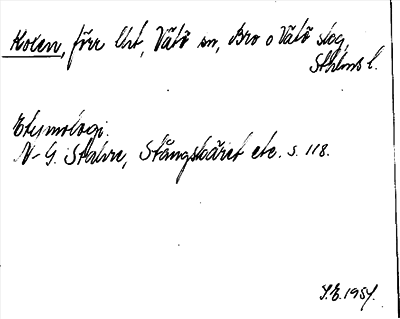 Kolen, förr Utt, Vätö sn, Bro o Vätö skg,
Sthlms l.
Etymologi.
N-G. Stahre, Stångskäret etc. s. 118.
S.E. 1954.